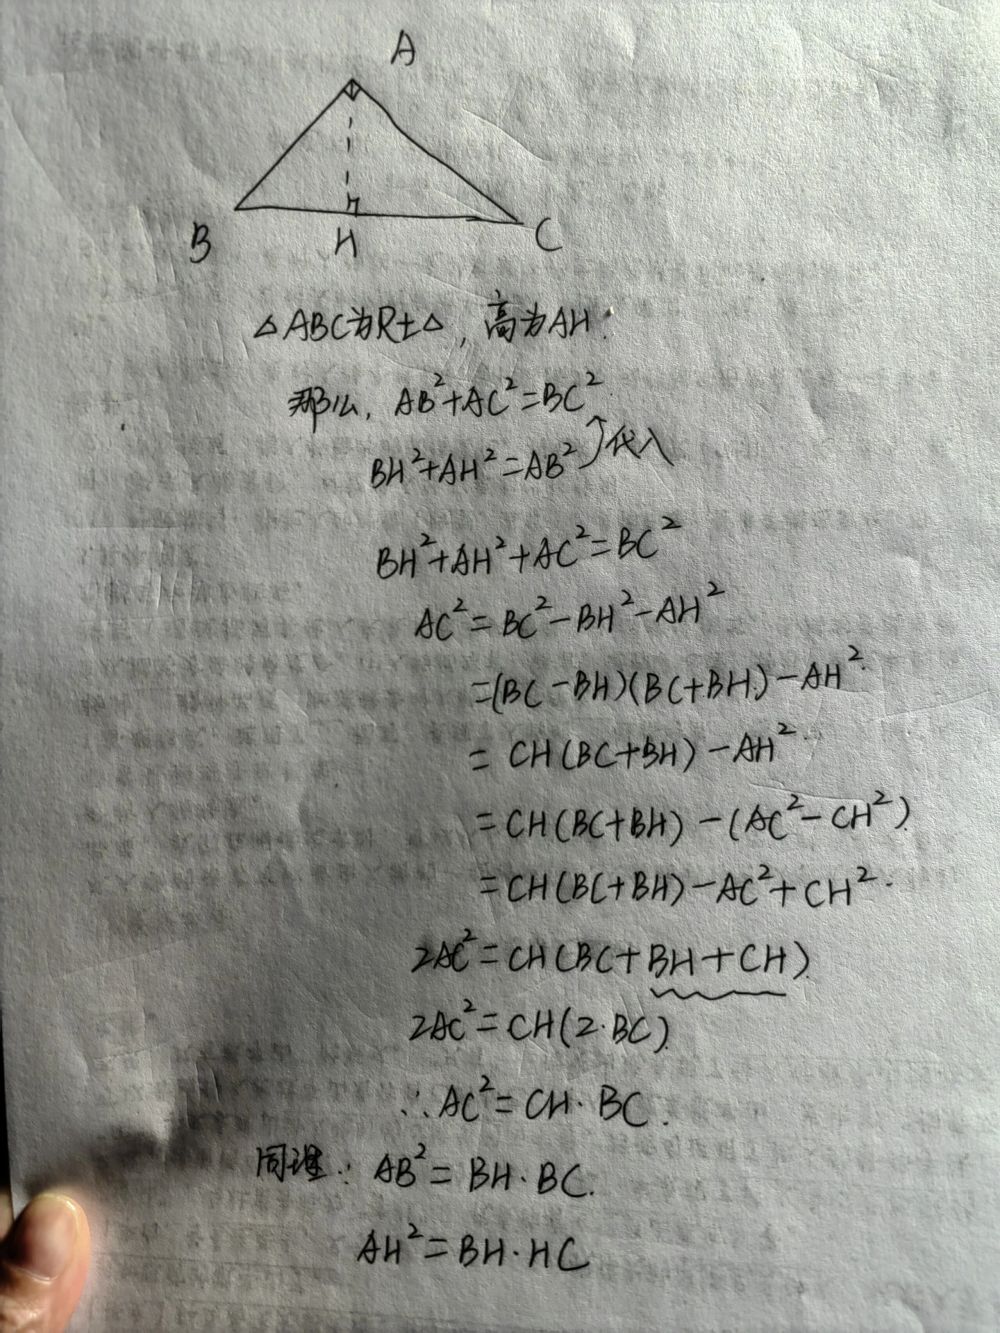 A
B
H
C
△ABC为Rt△, 高为AH.
那么, AB²+AC²=BC²
BH²+AH²=AB² 代入
BH²+AH²+AC²=BC²
AC²=BC²-BH²-AH²
=(BC-BH)(BC+BH)-AH²
=CH(BC+BH)-AH²
=CH(BC+BH)-(AC²-CH²)
=CH(BC+BH)-AC²+CH².
2AC²=CH(BC+BH+CH)
2AC²=CH(2·BC)
∴AC²=CH·BC.
同理: AB²=BH·BC.
AH²=BH·HC